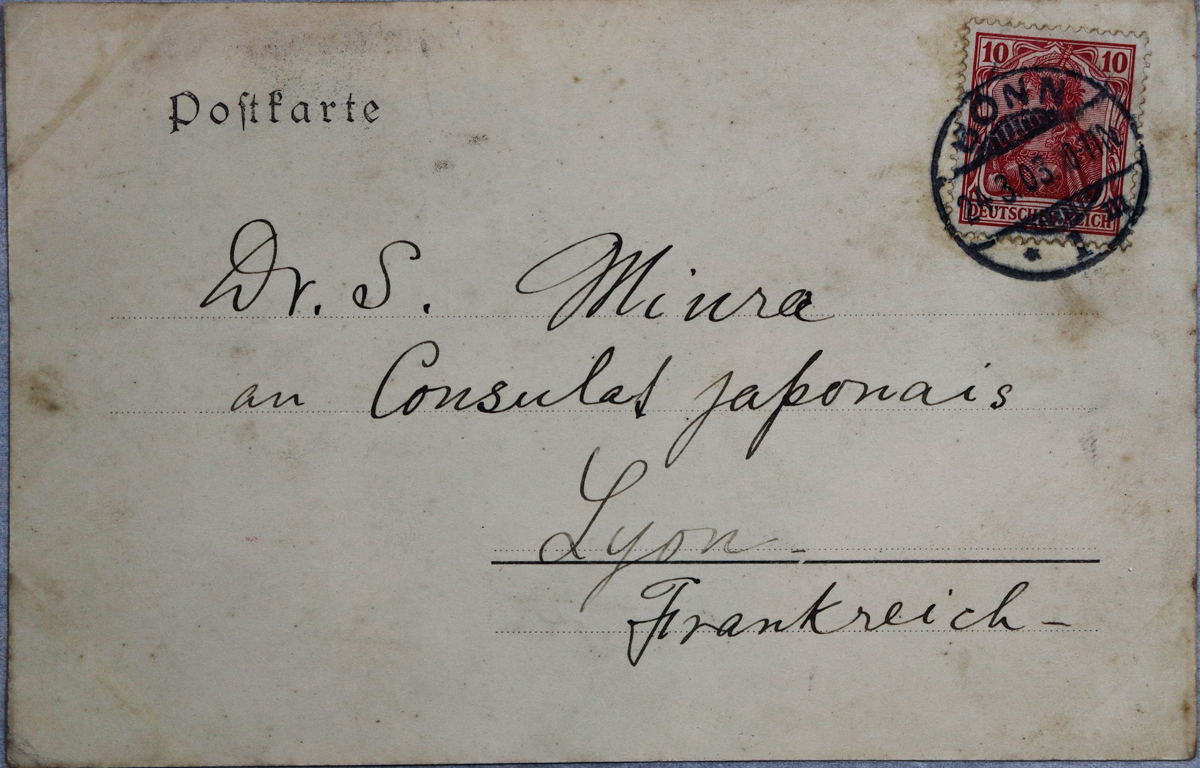 Postkarte
10 10
DEUTSCHES REICH
BONN
3.03.
1
Dr. S. Miura
an Consulat japonais
Lyon-
Frankreich-